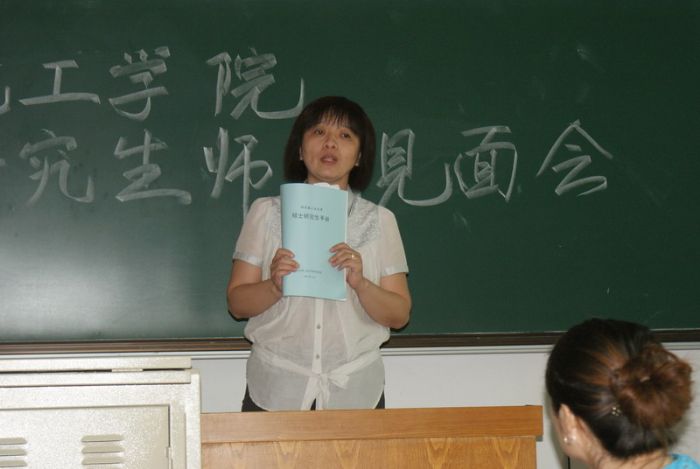 工学院
究生师 见面会
硕士研究生手册